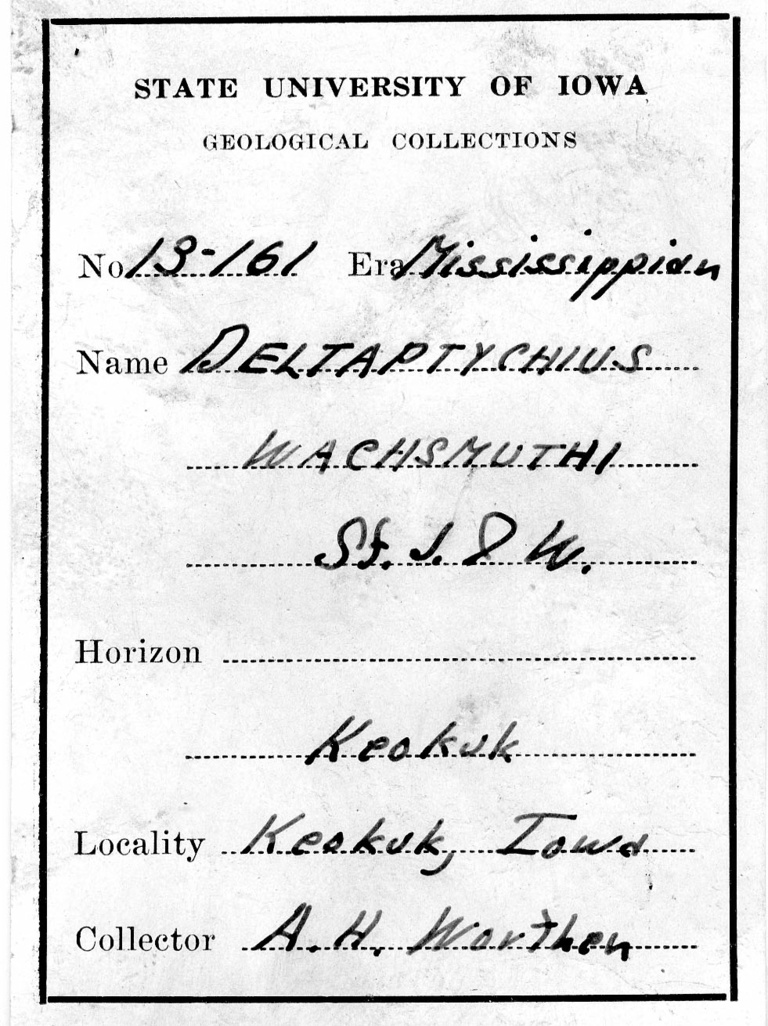 STATE UNIVERSITY OF IOWA
GEOLOGICAL COLLECTIONS
No 13-161 Era Mississippian
Name DELTAPTYCHIUS
WACHSMUTHI
St. J. & W.
Horizon
Keokuk
Locality Keokuk, Iowa
Collector A. H. Worthen